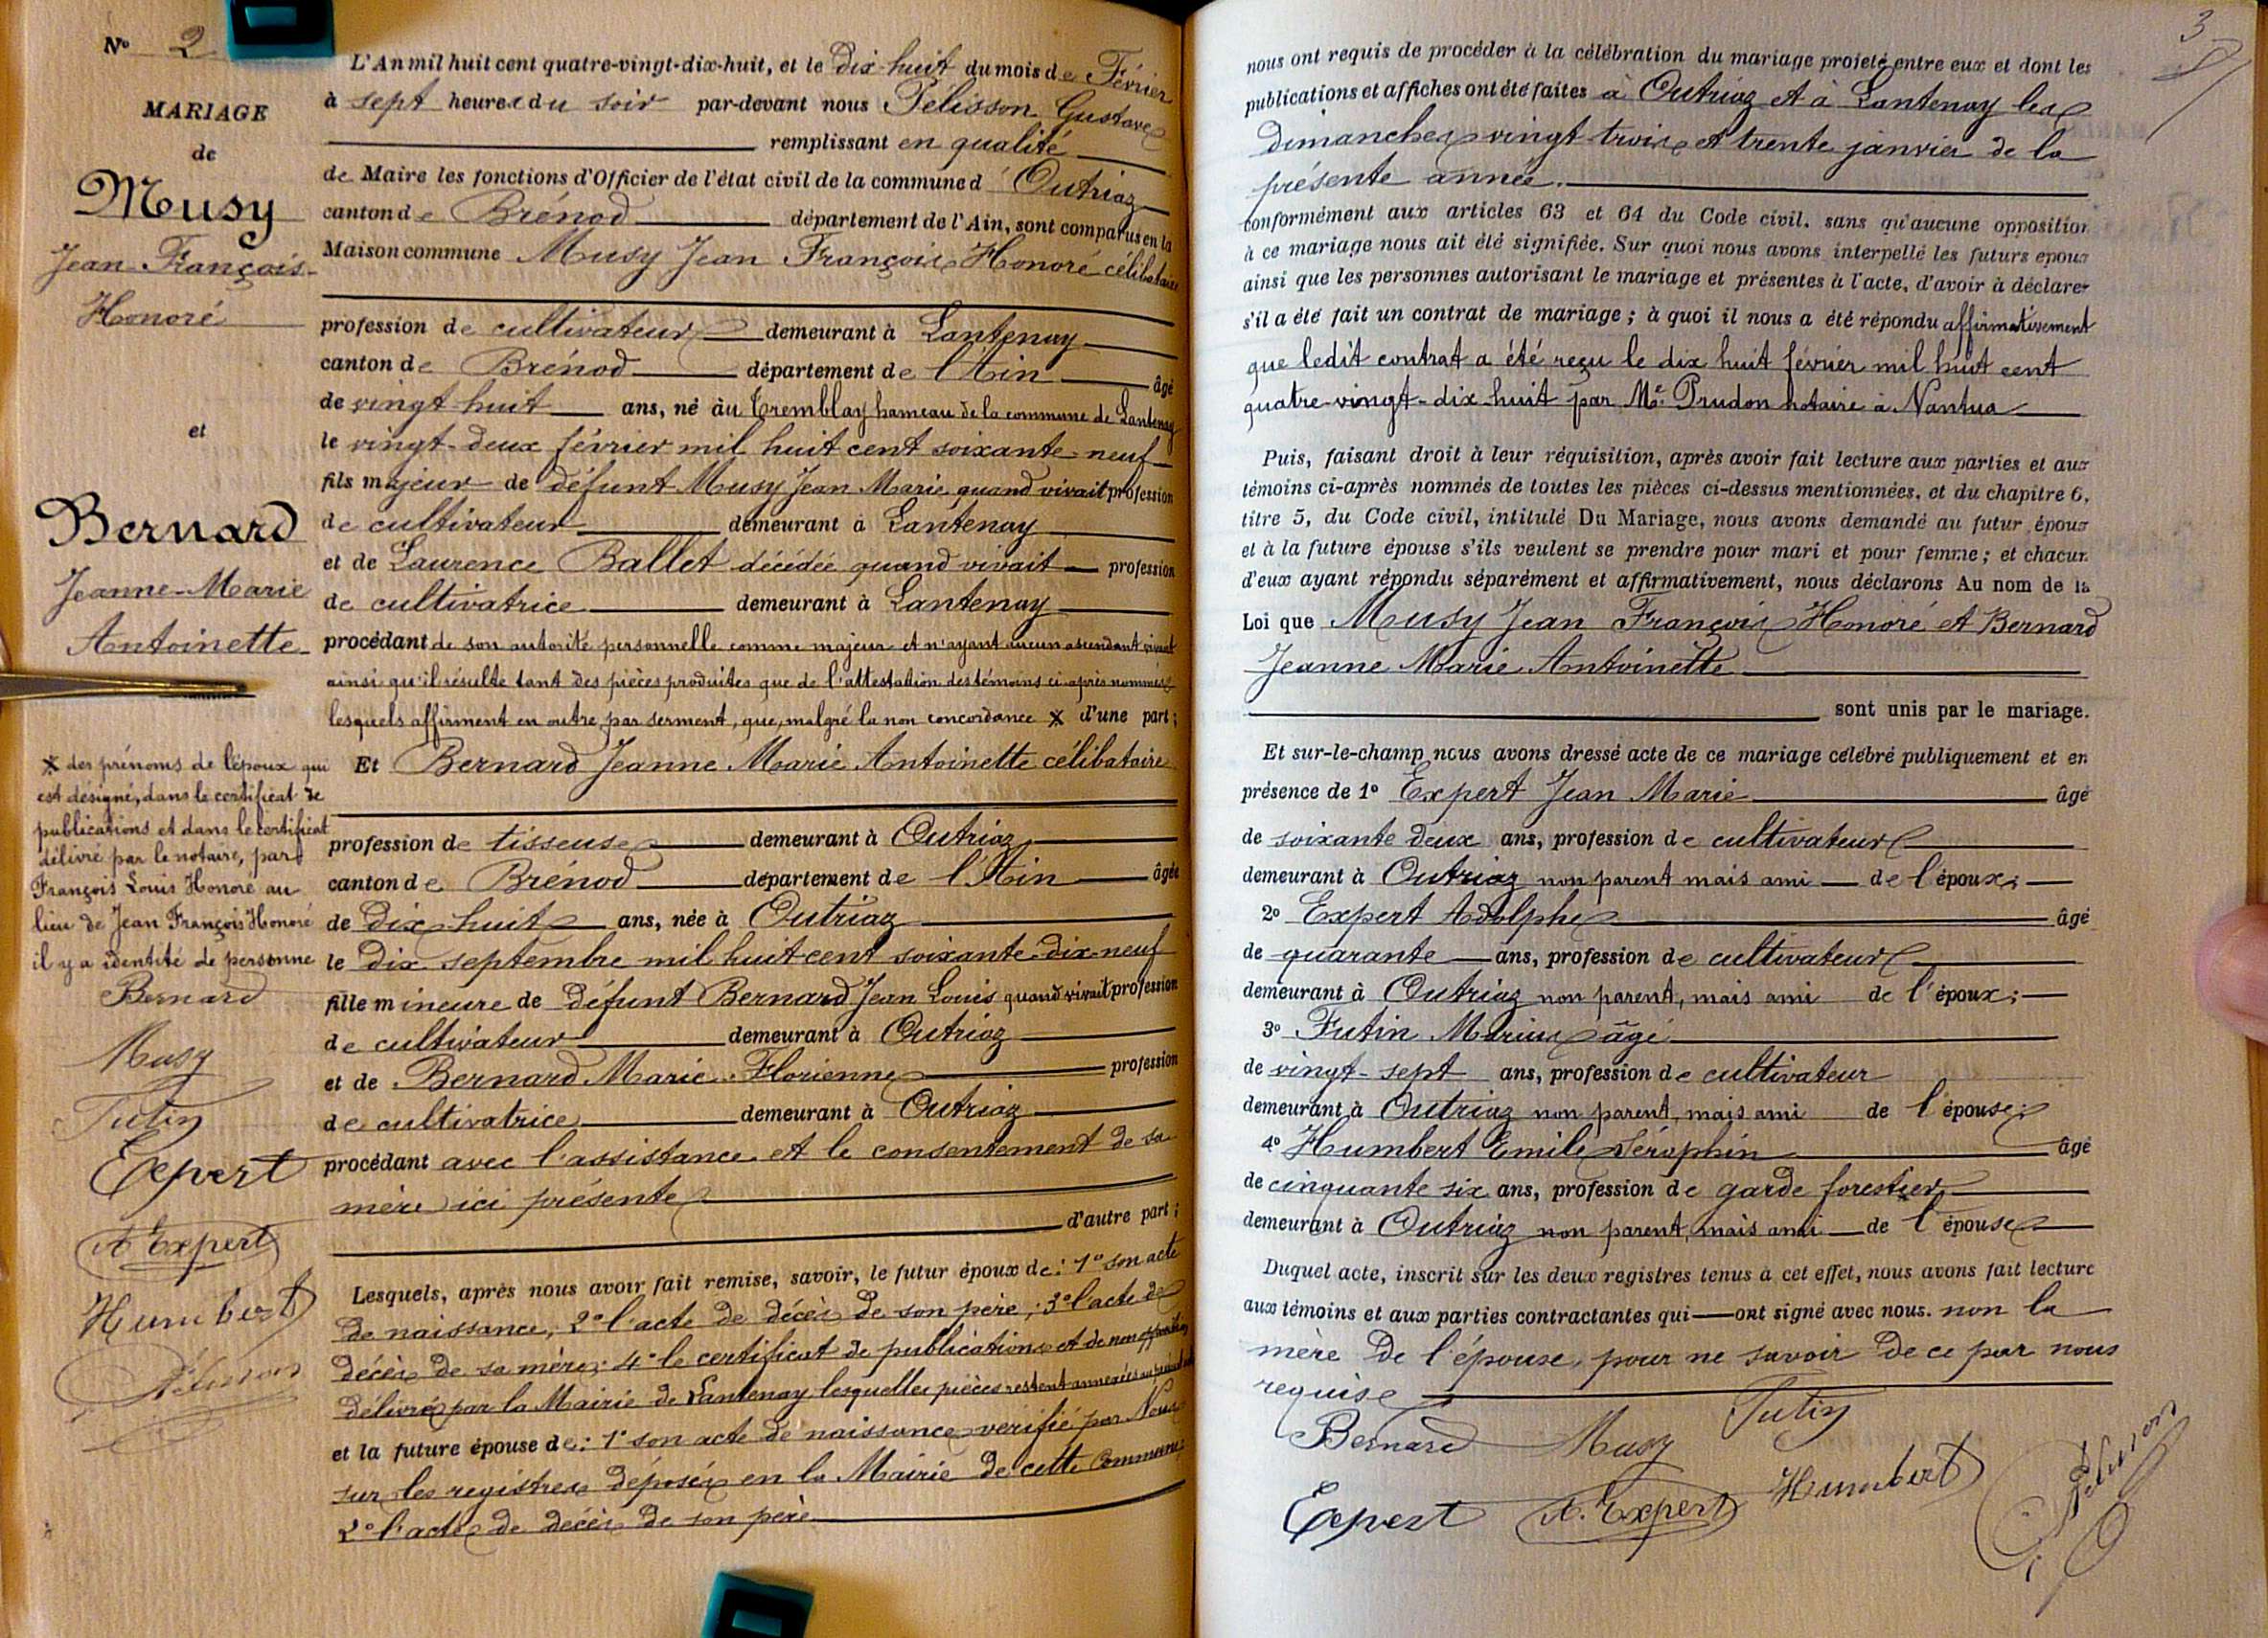 N° 2
MARIAGE
de
Musy
Jean-François-
Honoré
et
Bernard
Jeanne-Marie
Antoinette
* des prénoms de l'époux qui
est désigné, dans le certificat de
publications et dans le certificat
délivré par le notaire, par
François Louis Honoré au
lieu de Jean François Honoré
il y a identité de personne
Bernard
Musy
Futin
Expert
A Expert
Humbert
Pélisson
L'An mil huit cent quatre-vingt-dix-huit, et le dix huit du mois de Février
à sept heures du soir par-devant nous Pélisson Gustave
remplissant en qualité
de Maire les fonctions d'Officier de l'état civil de la commune d'Outriaz
canton de Brénod département de l'Ain, sont comparus en la
Maison commune Musy Jean François Honoré célibataire
profession de cultivateur demeurant à Lantenay
canton de Brénod département de l'Ain âgé
de vingt huit ans, né au Tremblay hameau de la commune de Lantenay
le vingt-deux février mil huit cent soixante-neuf
fils majeur de défunt Musy Jean Marie quand vivait profession
de cultivateur demeurant à Lantenay
et de Laurence Ballet décédée quand vivait profession
de cultivatrice demeurant à Lantenay
procédant de son autorité personnelle comme majeur et n'ayant aucun ascendant vivant
ainsi qu'il résulte tant des pièces produites que de l'attestation des témoins ci-après nommés
lesquels affirment en outre, par serment, que, malgré la non concordance * d'une part;
Et Bernard Jeanne Marie Antoinette célibataire
profession de tisseuse demeurant à Outriaz
canton de Brénod département de l'Ain âgée
de dix-huit ans, née à Outriaz
le dix septembre mil huit cent soixante-dix-neuf
fille mineure de défunt Bernard Jean Louis quand vivait profession
de cultivateur demeurant à Outriaz
et de Bernard Marie Florienne profession
de cultivatrice demeurant à Outriaz
procédant avec l'assistance et le consentement de sa
mère ici présente
d'autre part;
Lesquels, après nous avoir fait remise, savoir, le futur époux de: 1° son acte
de naissance; 2° l'acte de décès de son père; 3° l'acte de
décès de sa mère; 4° le certificat de publications et de non opposition
délivré par la Mairie de Lantenay, lesquelles pièces restent annexées au présent
et la future épouse de: 1° son acte de naissance vérifié par Nous
sur les registres déposés en la Mairie de cette Commune
2° l'acte de décès de son père
3
nous ont requis de procéder à la célébration du mariage projeté entre eux et dont les
publications et affiches ont été faites à Outriaz et à Lantenay les
dimanches vingt-trois et trente janvier de la
présente année.
conformément aux articles 63 et 64 du Code civil. sans qu'aucune opposition
à ce mariage nous ait été signifiée. Sur quoi nous avons interpellé les futurs époux
ainsi que les personnes autorisant le mariage et présentes à l'acte, d'avoir à déclarer
s'il a été fait un contrat de mariage; à quoi il nous a été répondu affirmativement
que ledit contrat a été reçu le dix huit février mil huit cent
quatre-vingt-dix-huit par Me. Prudon notaire à Nantua
Puis, faisant droit à leur réquisition, après avoir fait lecture aux parties et aux
témoins ci-après nommés de toutes les pièces ci-dessus mentionnées, et du chapitre 6,
titre 5, du Code civil, intitulé Du Mariage, nous avons demandé au futur époux
et à la future épouse s'ils veulent se prendre pour mari et pour femme; et chacun
d'eux ayant répondu séparément et affirmativement, nous déclarons Au nom de la
Loi que Musy Jean François Honoré et Bernard
Jeanne Marie Antoinette
sont unis par le mariage.
Et sur-le-champ nous avons dressé acte de ce mariage célébré publiquement et en
présence de 1° Expert Jean Marie âgé
de soixante deux ans, profession de cultivateur
demeurant à Outriaz non parent mais ami de l'époux;
2° Expert Adolphe âgé
de quarante ans, profession de cultivateur
demeurant à Outriaz non parent, mais ami de l'époux;
3° Futin Marius âgé
de vingt-sept ans, profession de cultivateur
demeurant à Outriaz non parent, mais ami de l'épouse;
4° Humbert Emile Séraphin âgé
de cinquante six ans, profession de garde forestier
demeurant à Outriaz non parent, mais ami de l'épouse
Duquel acte, inscrit sur les deux registres tenus à cet effet, nous avons fait lecture
aux témoins et aux parties contractantes qui ont signé avec nous. non la
mère de l'épouse, pour ne savoir de ce par nous
requise
Bernard Musy Futin
Expert A. Expert Humbert Pélisson